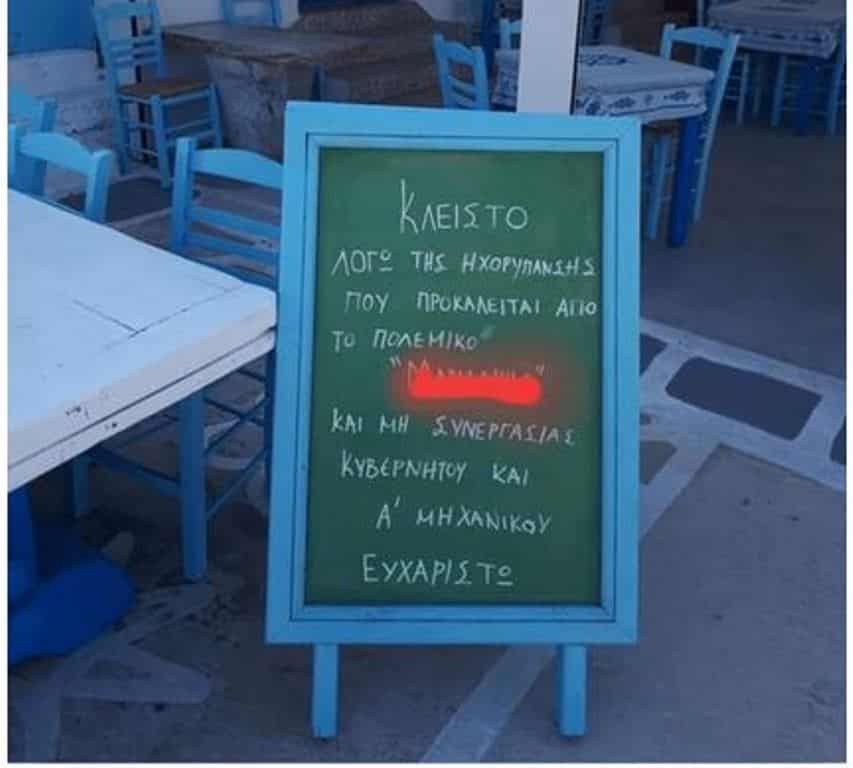 ΚΛΕΙΣΤΟ
ΛΟΓΩ ΤΗΣ ΗΧΟΡΥΠΑΝΣΗΣ
ΠΟΥ ΠΡΟΚΑΛΕΙΤΑΙ ΑΠΟ
ΤΟ ΠΟΛΕΜΙΚΟ
ΚΑΙ ΜΗ ΣΥΝΕΡΓΑΣΙΑΣ
ΚΥΒΕΡΝΗΤΟΥ ΚΑΙ
Α' ΜΗΧΑΝΙΚΟΥ
ΕΥΧΑΡΙΣΤΩ